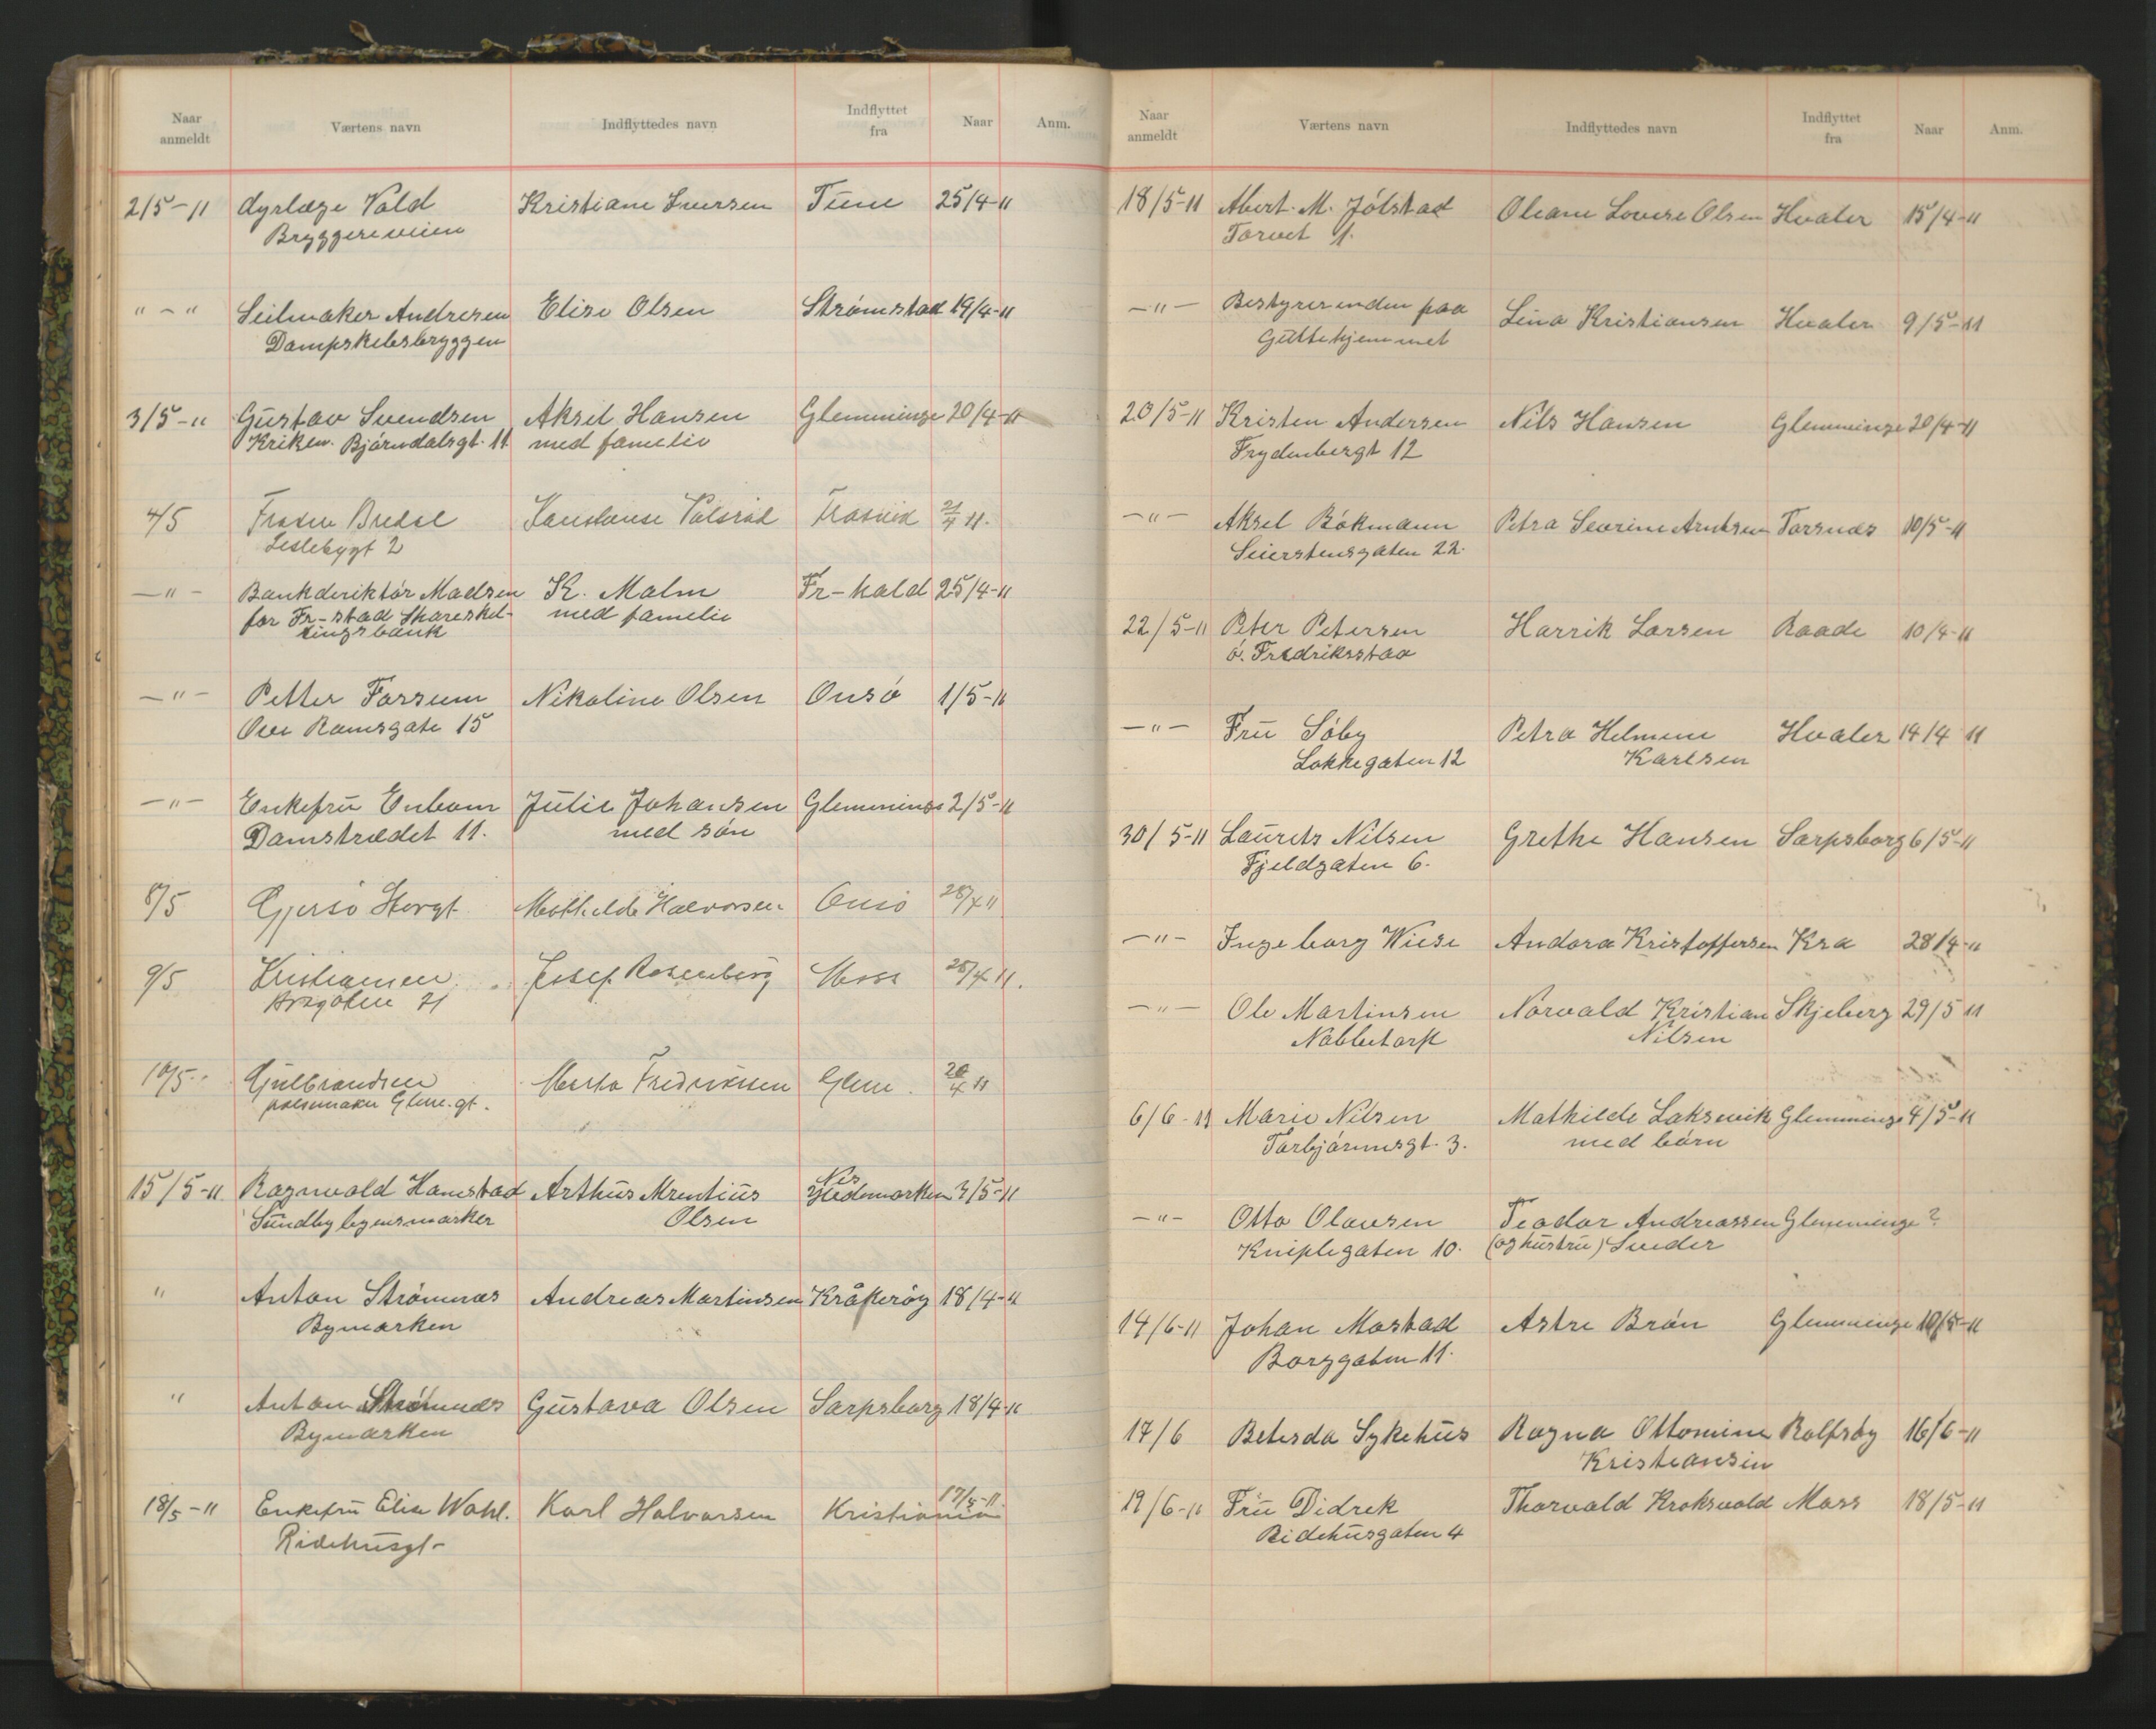 Naar anmeldt Værtens navn Indflyttedes navn Indflyttet fra Naar Anm.
2/5-11 dyrlæge Vold Kristiane Iversen Tune 25/4-11
Bryggeriveien
" - " Seilmaker Andresen Elise Olsen Strømstad 19/4-11
Dampskibsbryggen
3/5-11 Gustav Svendsen Aksel Hansen Glemminge 20/4-11
Kriken. Bjørndalsgt. 11 med familie
4/5 Bredal 21/4 11.
2
-"- Bankdirektør Madsen K. Malm Fr-hald 25/4-11
for Fr-stad med familie
-"- Petter Fossum Nikoline Olsen Onsø 1/5-11
Ove Ramsgate 15
-"- Enkefru Enbom Julie Johansen Glemminge 2/5-11
Damstrædet 11. med søn
8/5 Gjersø Storgt Mathilde Halvorsen Onsø 28/4 11
9/5 Kristiansen Josef Rosenberg Moss 28/4 11.
21
10/5 Gulbrandsen Marta Fredriksen Glem. 20/4 11
pølsemaker Glem.gt.
15/5-11 Ragnvald Hamstad Arthur Mrentius Nes Hedemarken 3/5-11
Sundbybyensmarker Olsen
" Anton Strømnæs Andreas Martinsen Kråkerøy 18/4-11
Bymarken
" Anton Strømnæs Gustava Olsen Sarpsborg 18/4-11
Bymarken
18/5-11 Enkefru Elise Wahl. Karl Halvorsen Kristiania 17/5-11.
Ridehusgt-
Naar anmeldt Værtens navn Indflyttedes navn Indflyttet fra Naar Anm.
18/5-11 Abert. M. Jølstad Oleane Lovise Olsen Hvaler 15/4-11
Torvet 1.
-"- Bestyrerinden paa Lina Kristiansen Hvaler 9/5-11
Guttehjemmet
20/5-11 Kristen Andersen Nils Hansen Glemminge 20/4-11
Frydenbergt 12
-"- Aksel Bökmann Petra Severine Arntsen Torsnæs 10/5-11
Seierstensgaten 22.
22/5-11 Peter Petersen Harrik Larsen Raade 10/4-11
ö. Fredriksstad
-"- Fru Søby Petra Helmine Hvaler 14/4 11
Løkkegaten 12 Karlsen
30/5-11 Laurits Nilsen Grethe Hansen Sarpsborg 6/5-11
Fjeldgaten 6.
-"- Ingeborg Wiese Andora Kristoffersen Kra 28/4-11
-"- Ole Martinsen Norvald Kristian Skjeberg 29/5 11
Nabbetorp Nilsen
6/6-11 Marie Nilsen Mathilde Laksevik Glemminge 4/5-11
Torbjørnsgt. 3. med børn
-"- Otto Olavsen Teodor Andreassen Glemminge ?
Kniplegaten 10. (og hustru) Sveder
14/6-11 Johan Mostad Astre Brøn Glemminge 10/5-11
Borggaten 11.
17/6 Betesda Sykehus Ragna Ottomine Rolfsøy 16/6-11
Kristiansen
19/6-11 Fru Didrek Thorvald Kroksvold Moss 18/5-11
Ridehusgaten 4